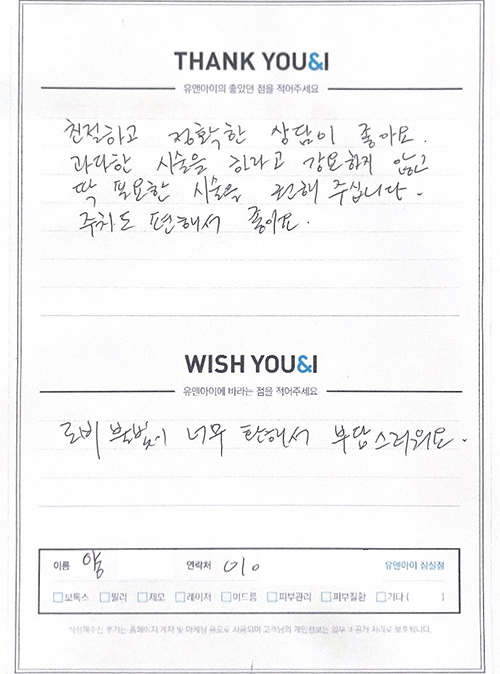 THANK YOU&I
유앤아이의 좋았던 점을 적어주세요
친절하고 정확한 상담이 좋아요.
과다한 시술을 하라고 강요하지 않고
딱 필요한 시술을 권해 주십니다.
주차도 편해서 좋아요.
WISH YOU&I
유앤아이에 바라는 점을 적어주세요
로비 불빛이 너무 환해서 부담스러워요.
이름 연락처 010 유앤아이 잠실점
보톡스 필러 제모 레이저 여드름 피부관리 피부질환 기타 ( )
작성해주신 후기는 홈페이지 게재 및 마케팅 용도로 사용되며 고객님의 개인정보는 일부 비공개 처리로 보호됩니다.